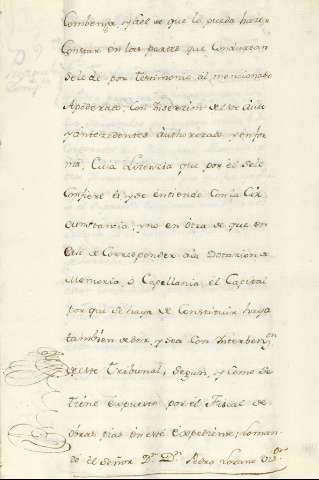 Combenga, y á el se que lo pueda hacer
Constar en las partes que Conduzcan
se le dé por testimonio al mencionado
Apoderado, con Insercion de este Auto
y antecedentes authorizado y en for
ma, Cuia Licencia que por él se le
Confiere és y se entiende con la Cir
cunstancia, y no en otra de que en
caso de Corresponder a la Dotacion de
Memoria, ó Capellania, el Capital
por que se haya de Constituir haya
tambien de ser, y sea con Interben.on
de este Tribunal; segun, y como se
tiene expuesto por el Fiscal de
obras pias en este expediente; lo man
dó el Señor D.r D.n Pedro Lozano